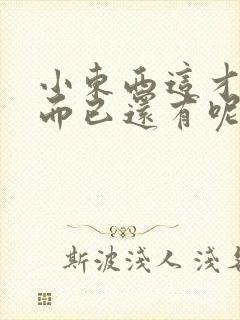 小東西這才
而已還有呢
斯波淺人 淺